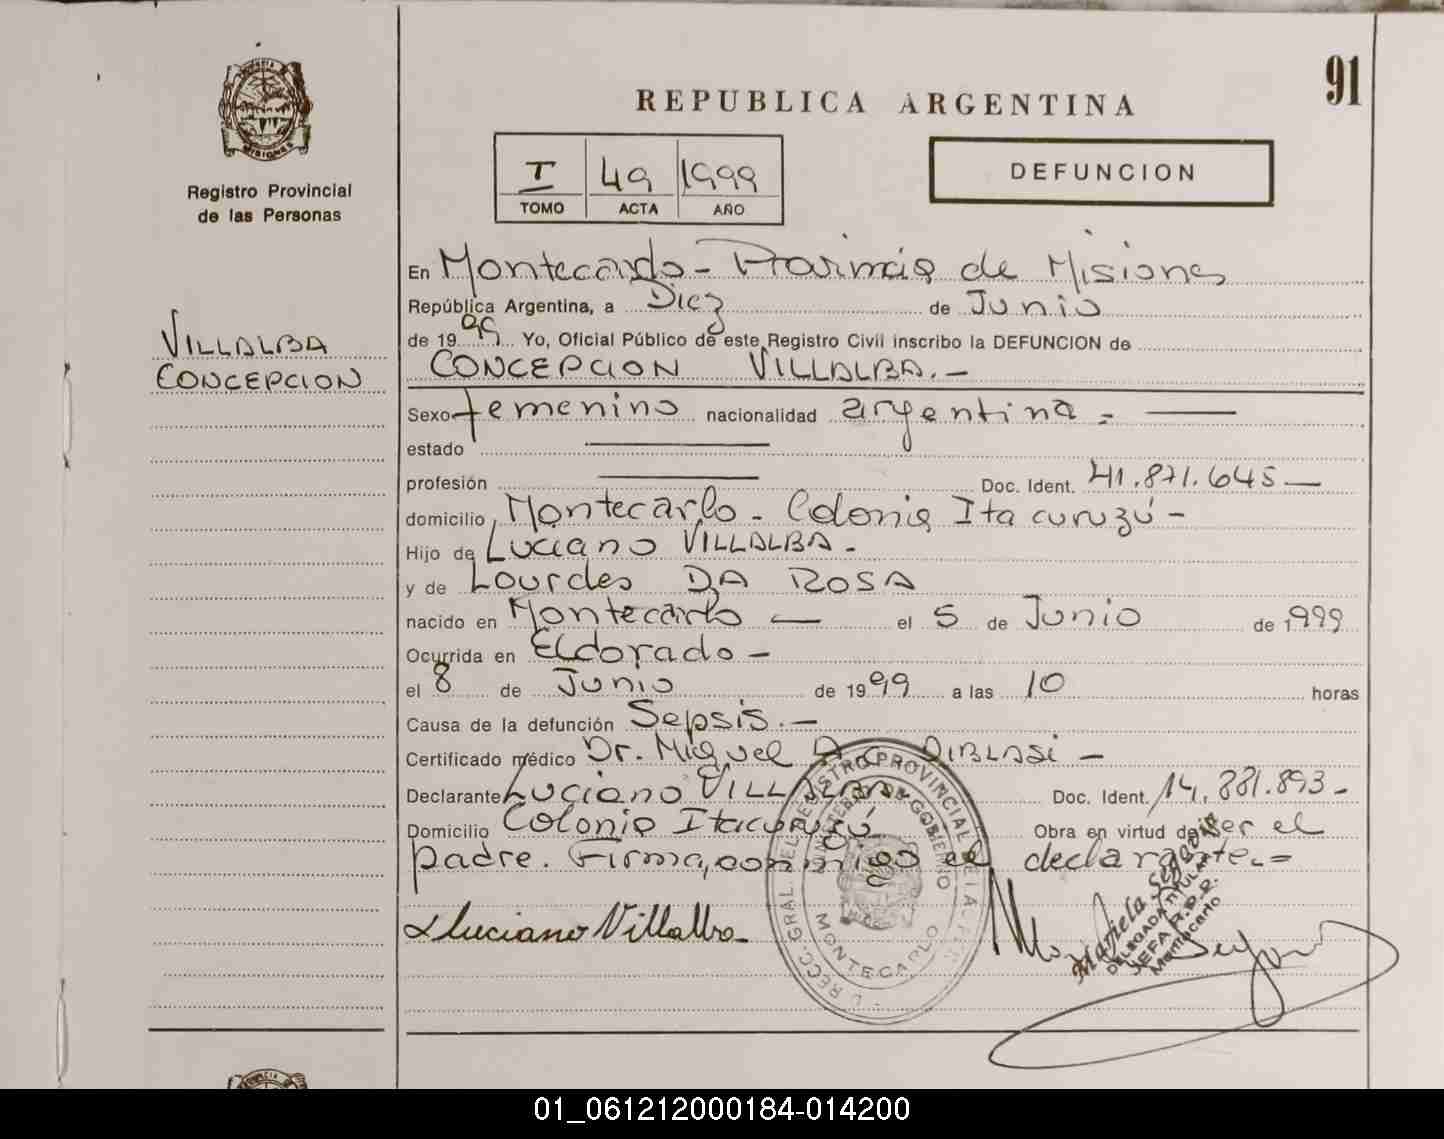 91
REPUBLICA ARGENTINA
PROVINCIA DE
MISIONES
Registro Provincial
de las Personas
I 49 1999
TOMO ACTA AÑO
DEFUNCION
VILLALBA
CONCEPCION
En Montecarlo - Provincia de Misiones
República Argentina, a Diez de Junio
de 1999 Yo, Oficial Público de este Registro Civil inscribo la DEFUNCION de
CONCEPCION VILLALBA.-
Sexo femenino nacionalidad argentina -
estado
profesión Doc. Ident. 41.871.645 -
domicilio Montecarlo - Colonia Ita curuzú -
Hijo de Luciano VILLALBA -
y de Lourdes DA ROSA
nacido en Montecarlo - el 5 de Junio de 1999
Ocurrida en Eldorado -
el 8 de Junio de 1999 a las 10 horas
Causa de la defunción Sepsis.-
Certificado médico Dr. Miguel A. DIBLASI -
Declarante Luciano VILLALBA Doc. Ident. 14.881.893-
Domicilio Colonia Itacuruzú Obra en virtud de ser el
padre. Firma, conmigo el declarante.=
Luciano Villalba
GRAL. DEL REGISTRO PROVINCIAL DE
MINISTERIO DE GOBIERNO
MONTECARLO
Mariela Segovia
DELEGADA TITULAR
JEFA R.P.P.
Montecarlo
01_061212000184-014200